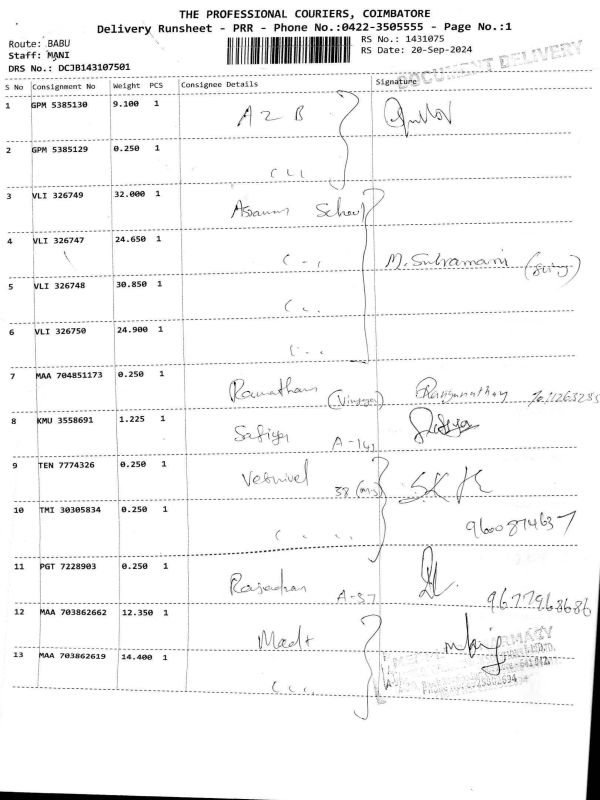 THE PROFESSIONAL COURIERS, COIMBATORE
Delivery Runsheet - PRR - Phone No.:0422-3505555 - Page No.:1
Route: BABU
RS No.: 1431075
Staff: MANI
RS Date: 20-Sep-2024
DRS No.: DCJB143107501
DOCUMENT DELIVERY
S No Consignment No Weight PCS Consignee Details Signature
1 GPM 5385130 9.100 1 A 2 B
2 GPM 5385129 0.250 1
3 VLI 326749 32.000 1
4 VLI 326747 24.650 1 M. Subramani
5 VLI 326748 30.850 1
6 VLI 326750 24.900 1
7 MAA 704851173 0.250 1 Ranganathan
8 KMU 3558691 1.225 1 Safiya A-141 Safiya
9 TEN 7774326 0.250 1 38
10 TMI 30305834 0.250 1 9600874637
11 PGT 7228903 0.250 1 A-57 9677968686
12 MAA 703862662 12.350 1
13 MAA 703862619 14.400 1